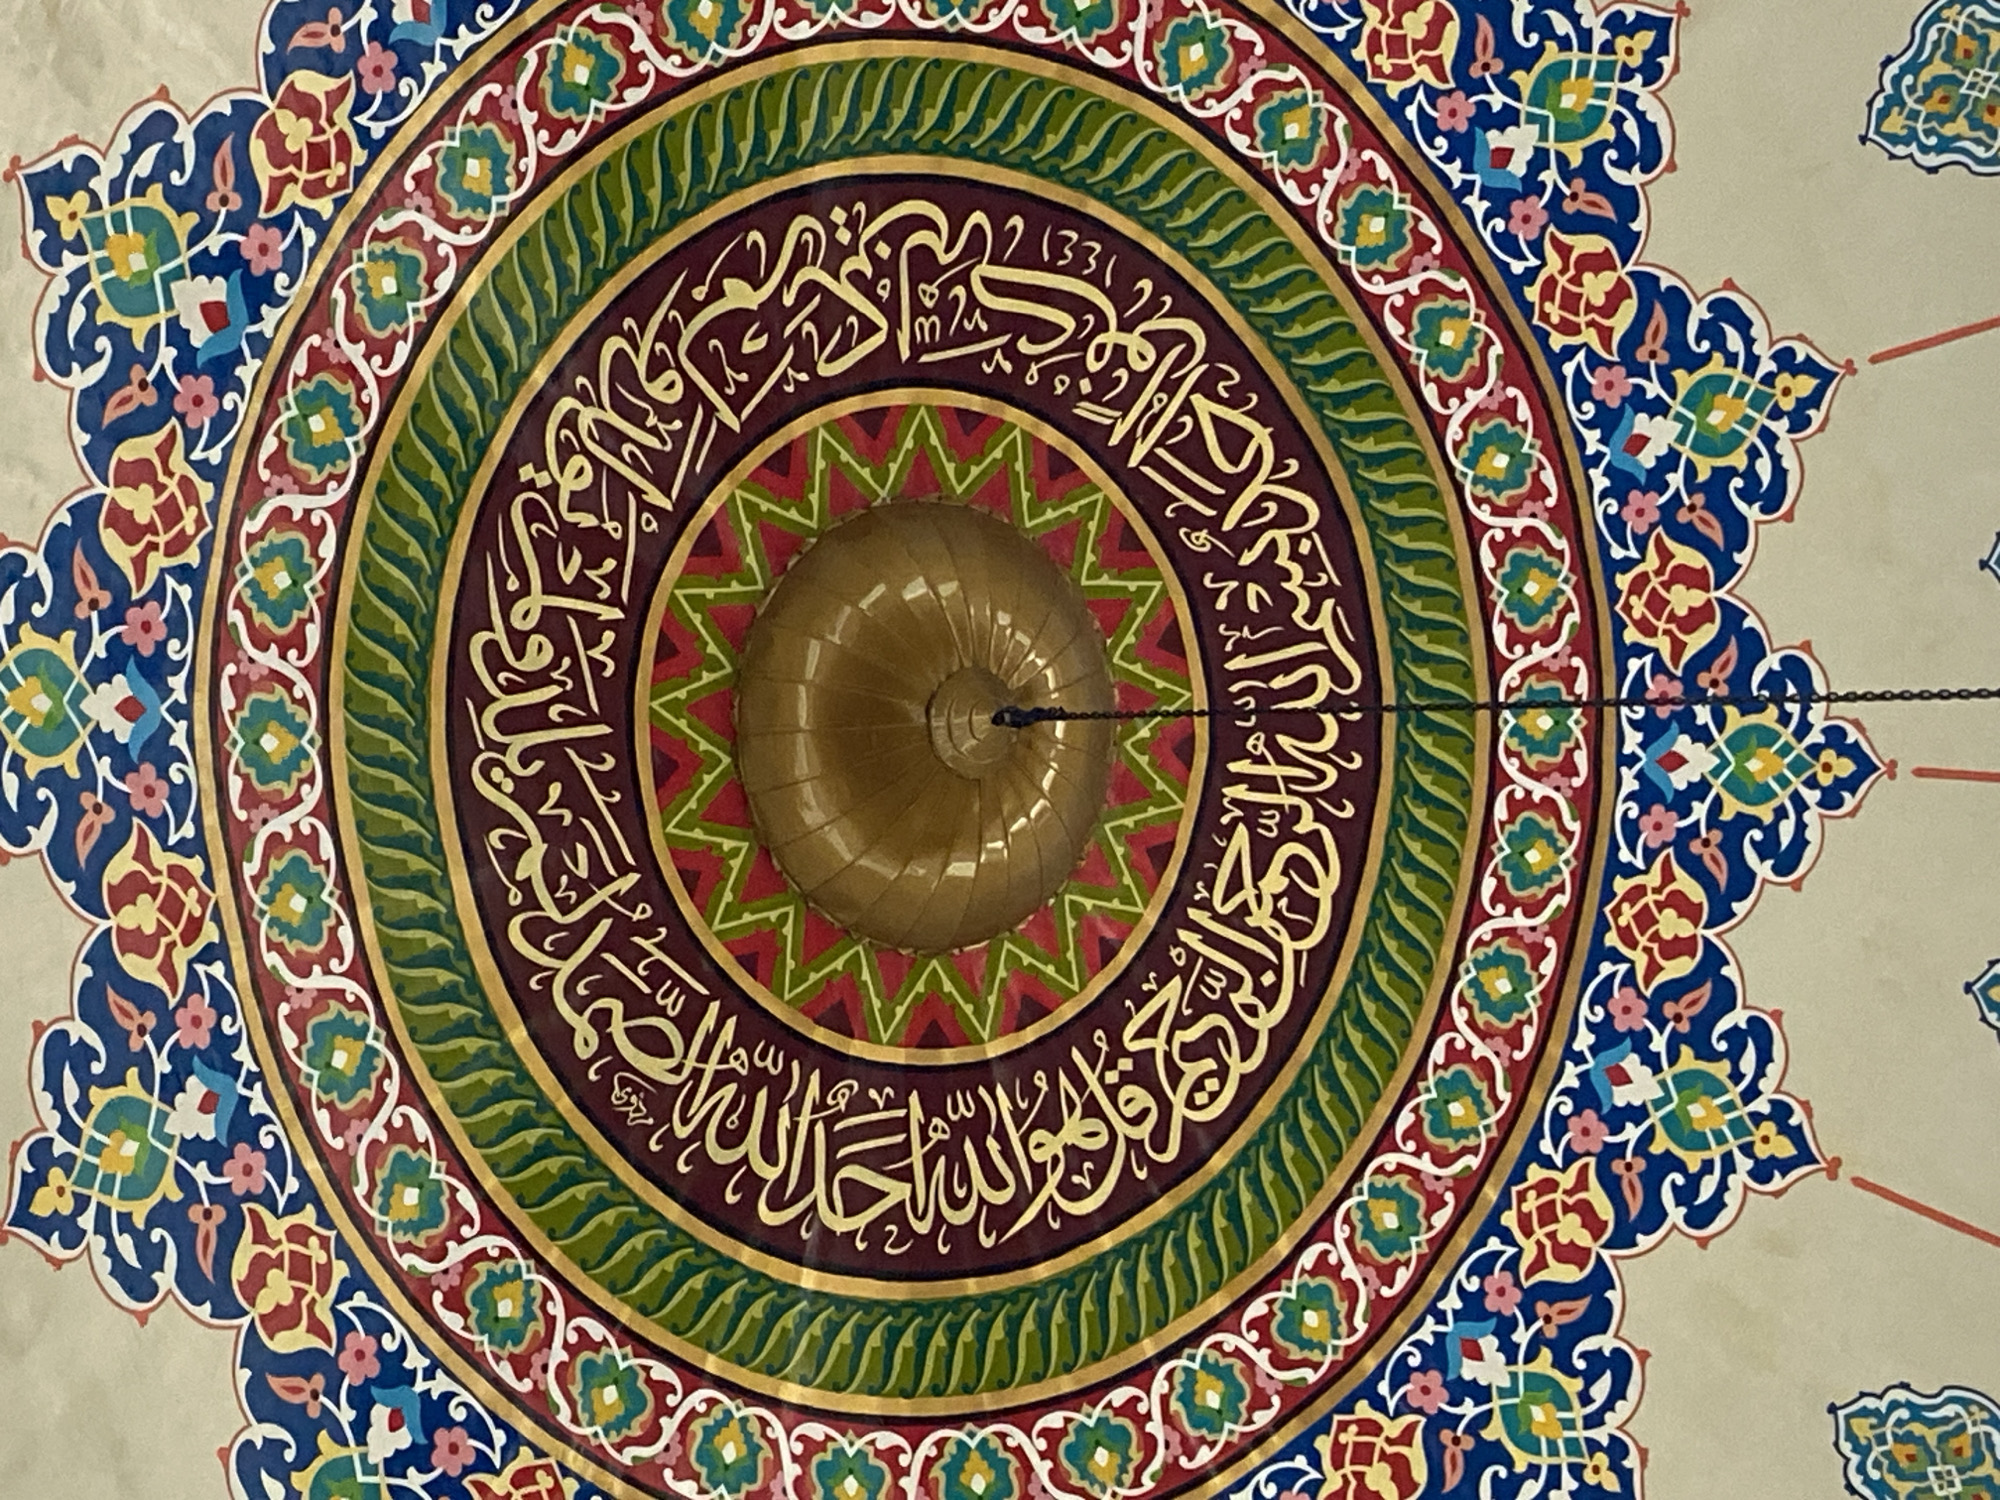 بِسْمِ اللّٰهِ الرَّحْمٰنِ الرَّحِيمِ قُلْ هُوَ اللّٰهُ أَحَدٌ اللّٰهُ الصَّمَدُ لَمْ يَلِدْ وَلَمْ يُولَدْ وَلَمْ يَكُنْ لَهُ كُفُوًا أَحَدٌ
١٤٤١